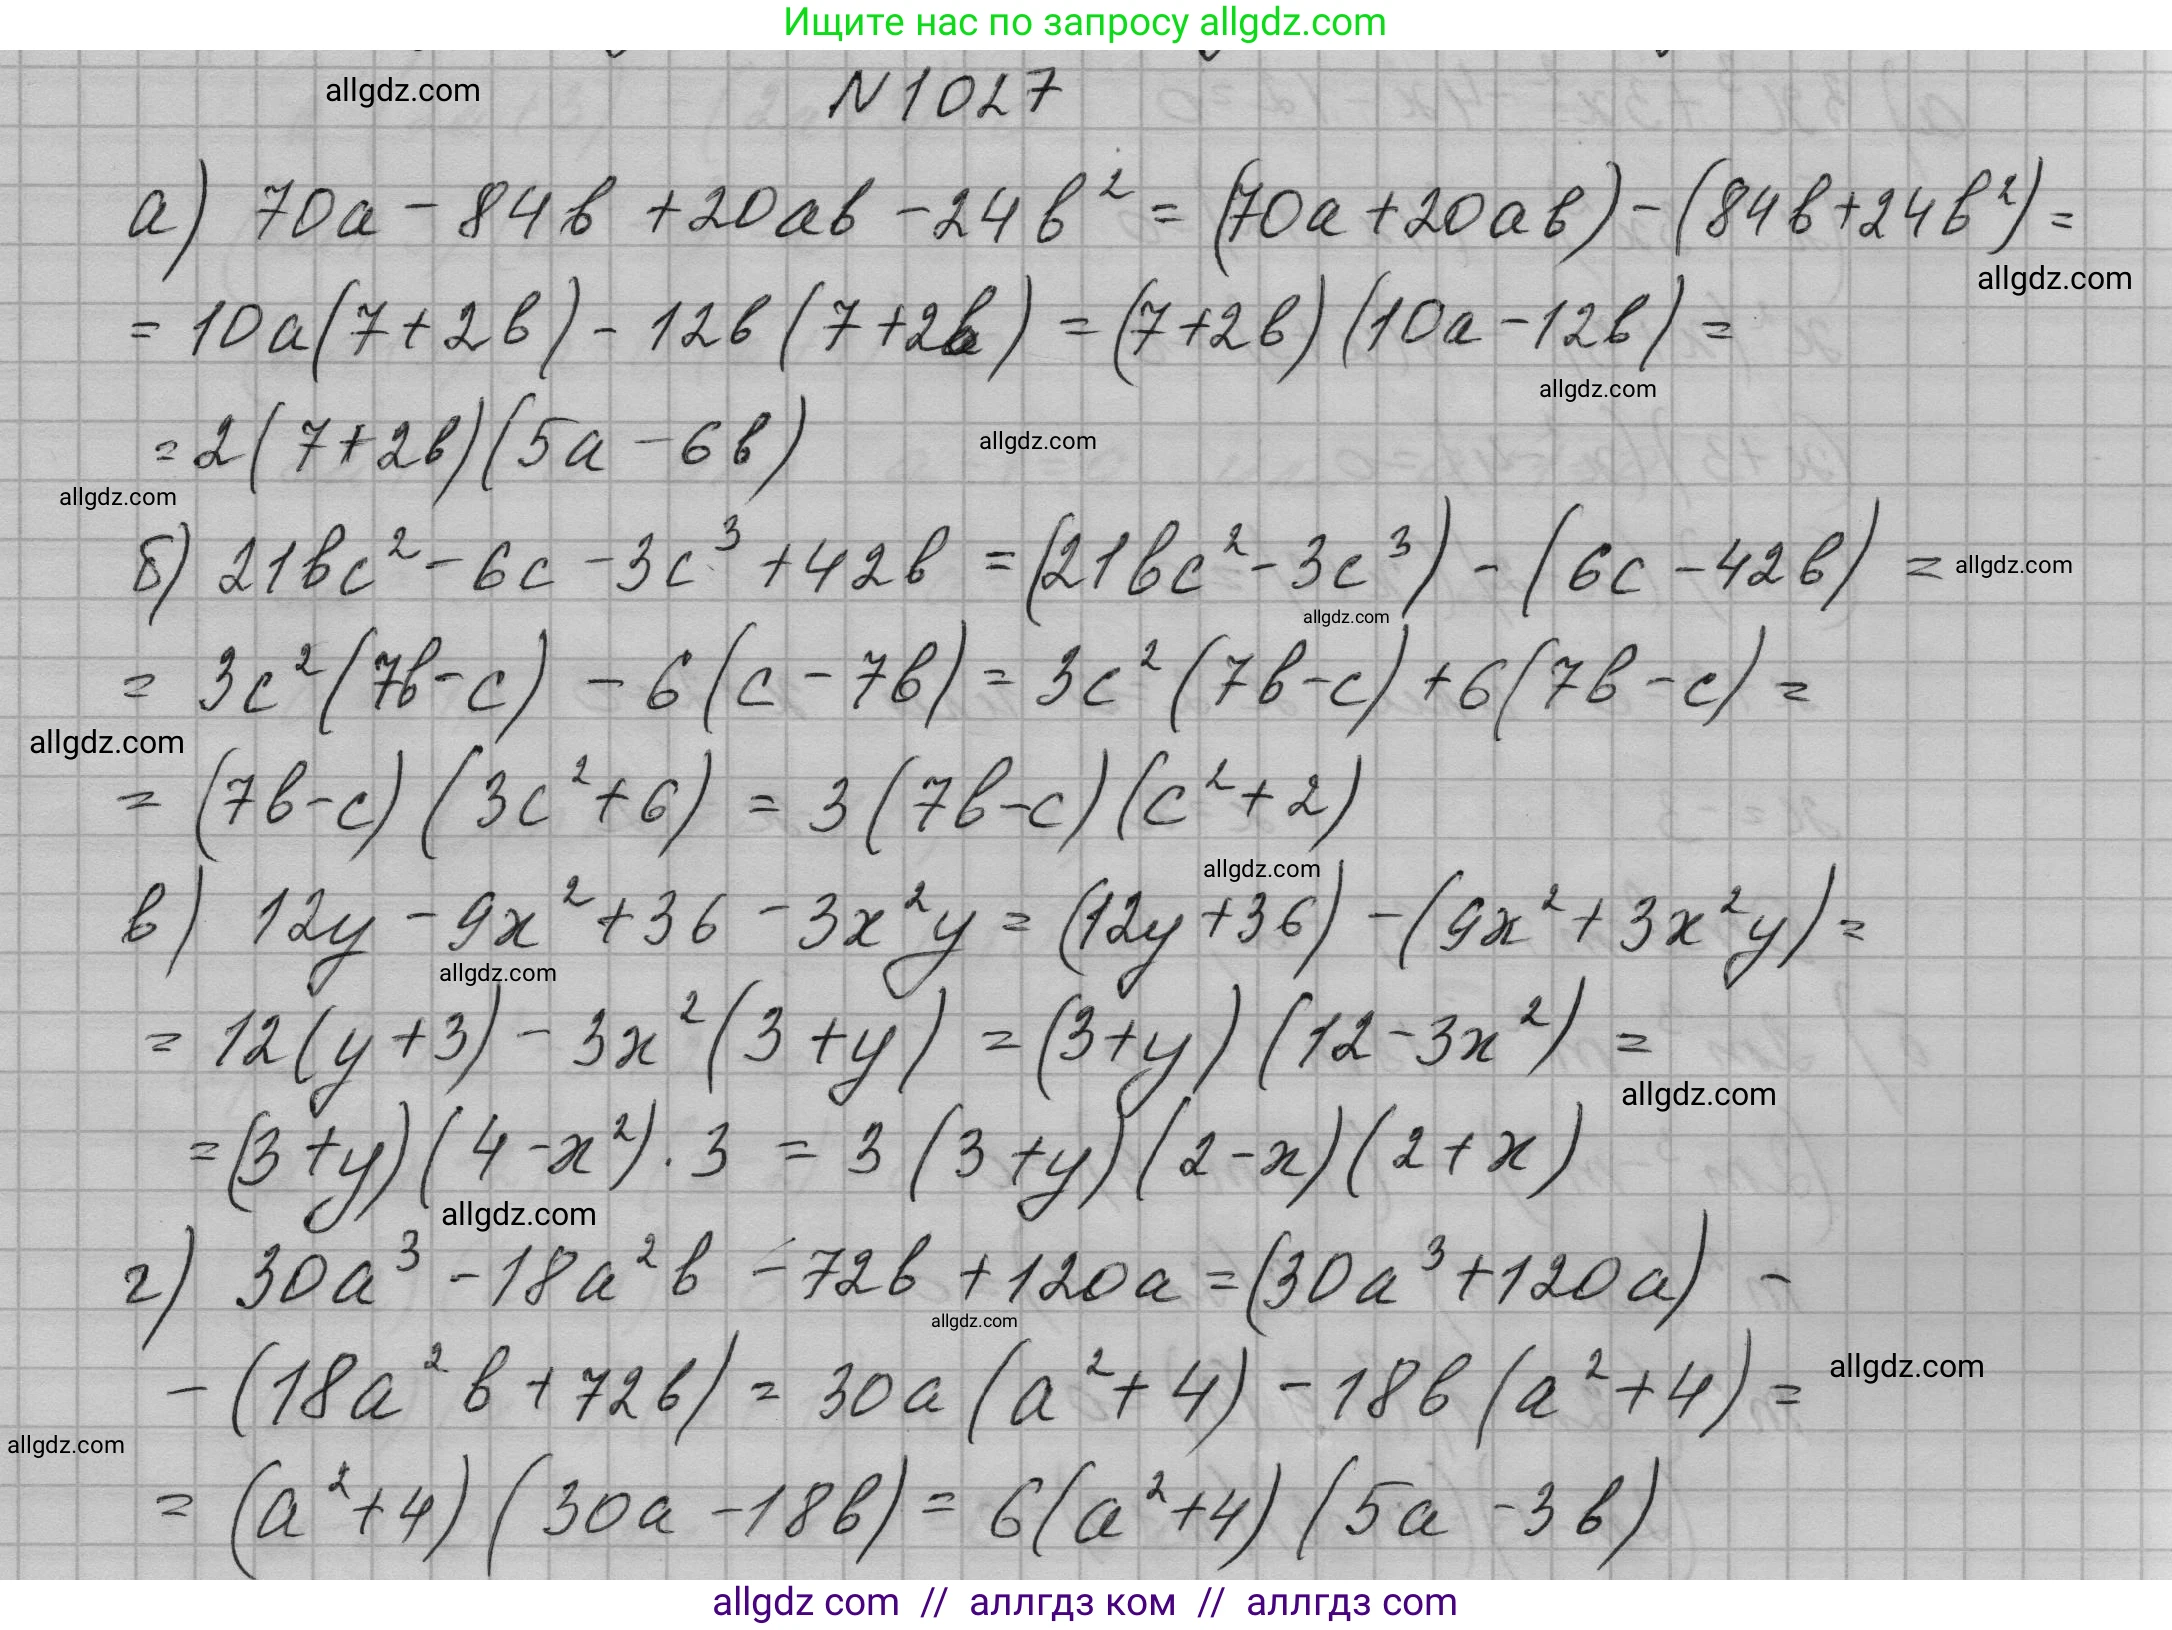 Ищите нас по запросу allgdz.com
allgdz.com
N 1027
а) 70a - 84b + 20ab - 24b² = (70a + 20ab) - (84b + 24b²) =
allgdz.com
= 10a(7 + 2b) - 12b(7 + 2b) = (7 + 2b)(10a - 12b) =
allgdz.com
= 2(7 + 2b)(5a - 6b)
allgdz.com
allgdz.com
б) 21bc² - 6c - 3c³ + 42b = (21bc² - 3c³) - (6c - 42b) =
allgdz.com
allgdz.com
= 3c²(7b - c) - 6(c - 7b) = 3c²(7b - c) + 6(7b - c) =
allgdz.com
= (7b - c)(3c² + 6) = 3(7b - c)(c² + 2)
allgdz.com
в) 12y - 9x² + 36 - 3x²y = (12y + 36) - (9x² + 3x²y) =
allgdz.com
= 12(y + 3) - 3x²(3 + y) = (3 + y)(12 - 3x²) =
allgdz.com
= (3 + y)(4 - x²) · 3 = 3(3 + y)(2 - x)(2 + x)
allgdz.com
г) 30a³ - 18a²b - 72b + 120a = (30a³ + 120a) -
allgdz.com
- (18a²b + 72b) = 30a(a² + 4) - 18b(a² + 4) =
allgdz.com
allgdz.com
= (a² + 4)(30a - 18b) = 6(a² + 4)(5a - 3b)
allgdz com // аллгдз ком // аллгдз com